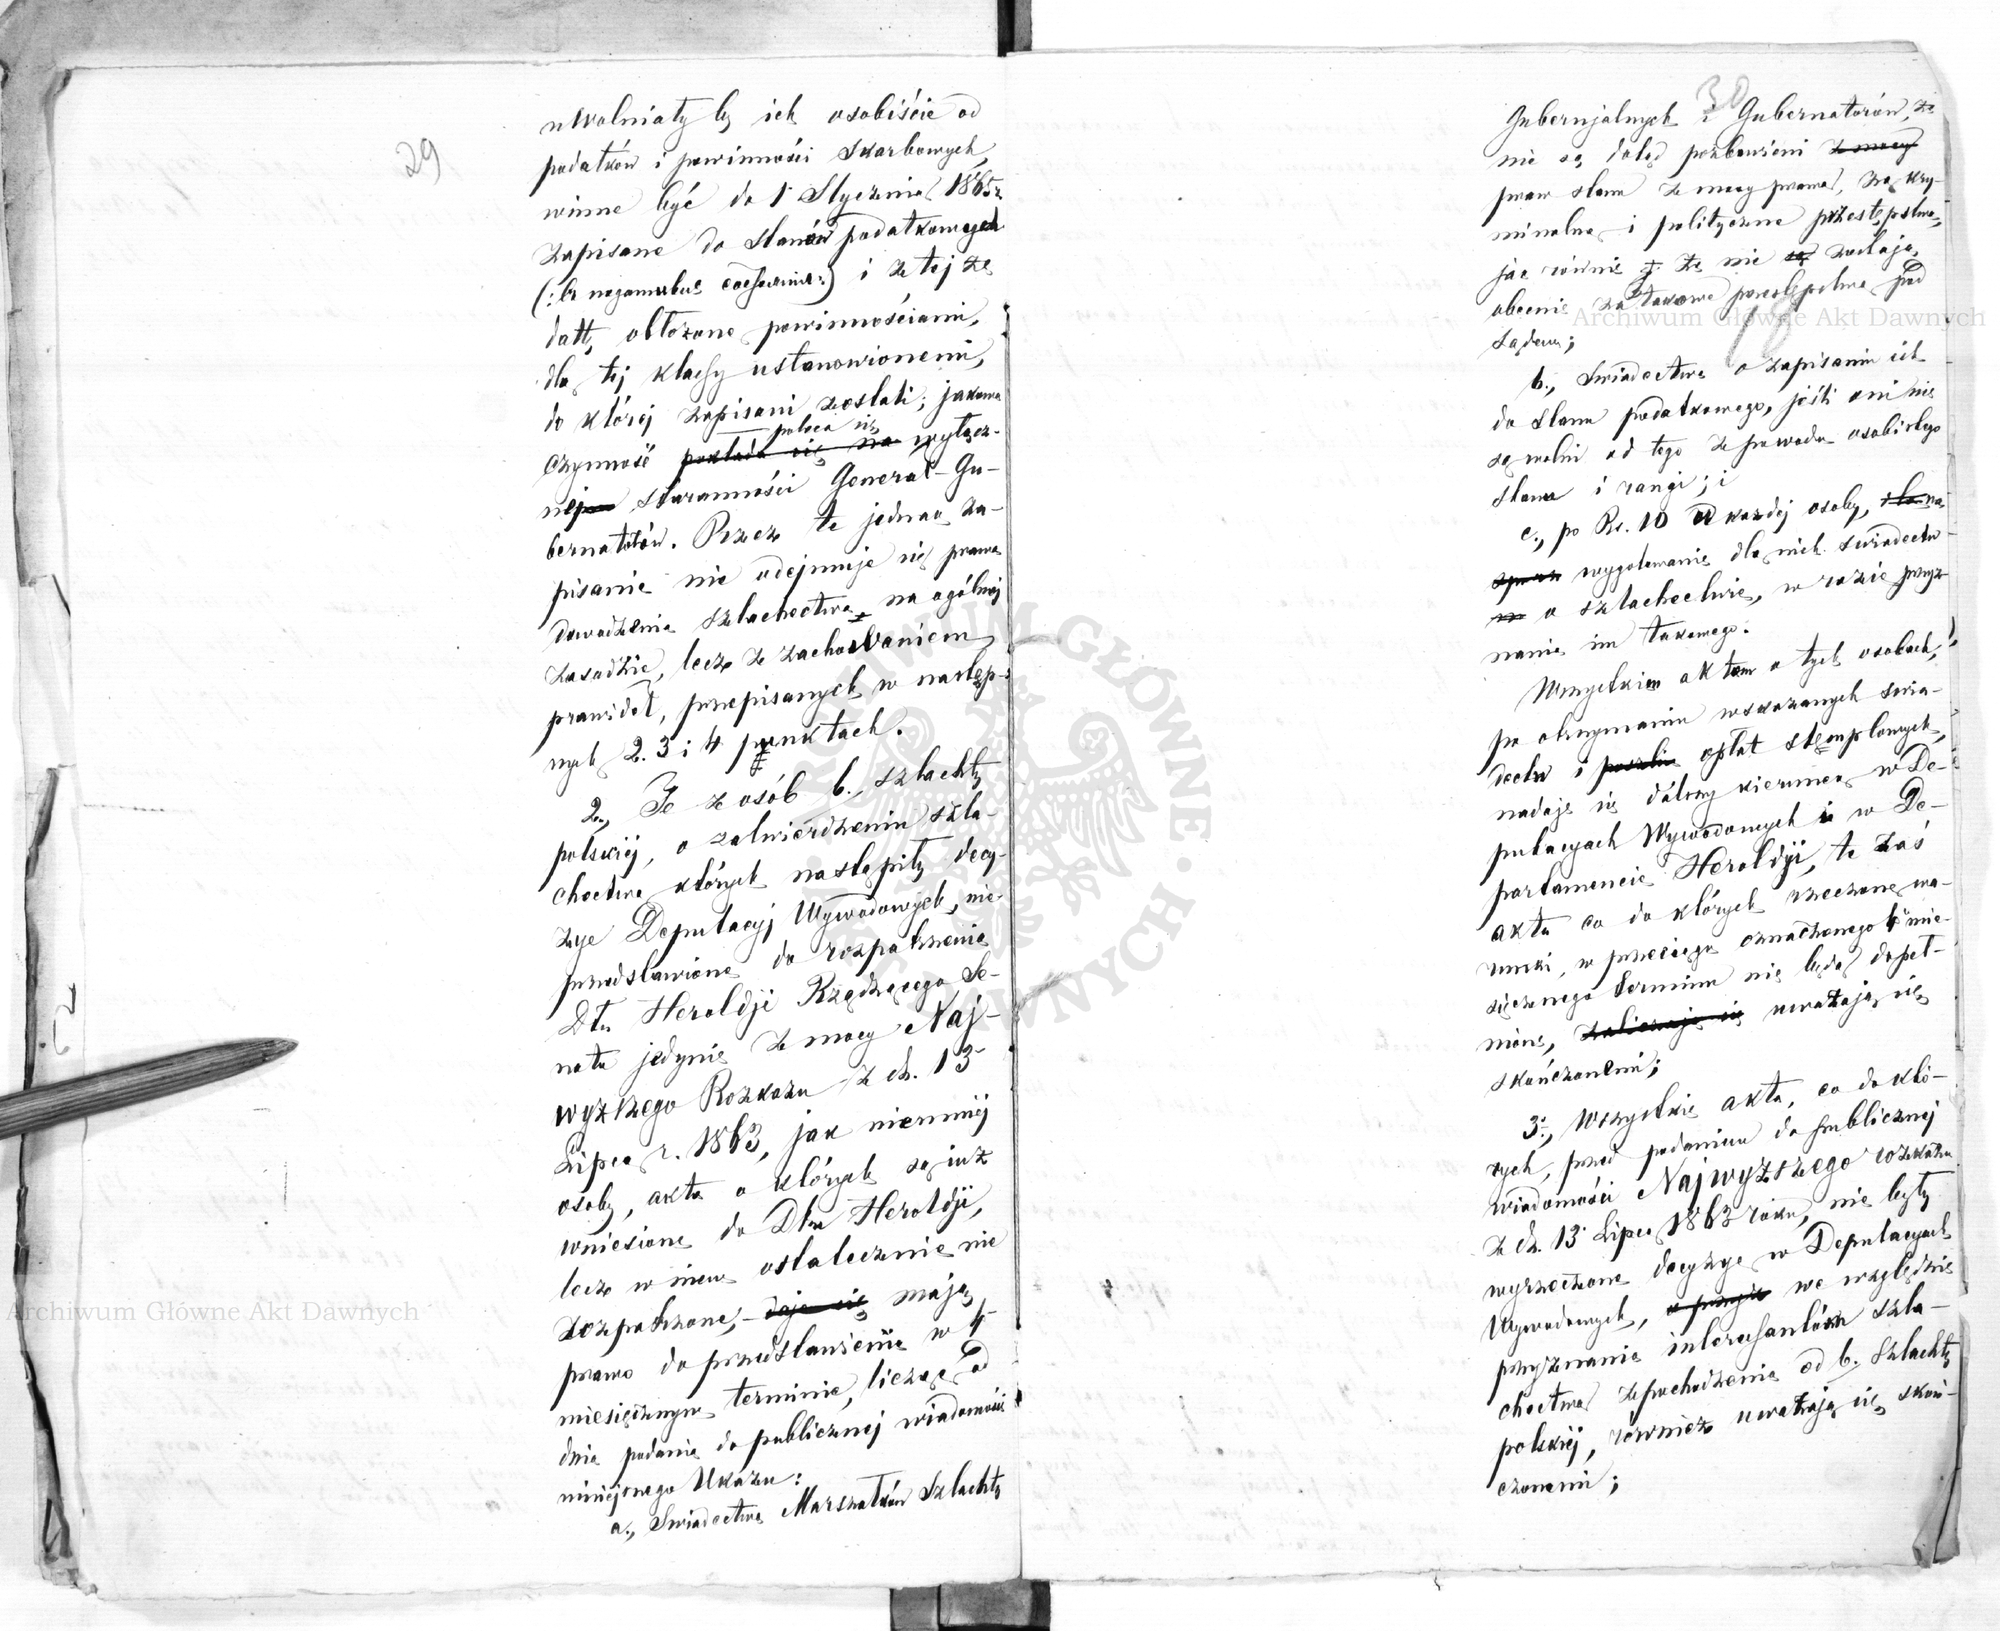 29
uwolniały by ich osobiście od
podatków i powinności skarbowych,
winne być do 1 Stycznia 1865 r
zapisane do stanów podatkowych
i z tej że
daty, obłożone powinnościami,
dla tej klassy ustanowionemi,
do której zapisani zostali; jakowa
poleca się
czynność pokłada się na wyłącz-
nej staranności Generał-Gu-
bernatorów. Przez te jednak za-
pisanie nie odejmuje się prawa
dowodzenia szlachectwa na ogólnej
zasadzie, lecz z zachowaniem
prawideł, przepisanych w następ-
nych 2. 3 i 4 punktach.
2., Te z osób b., szlachty
polskiéj, o zatwierdzeniu szla-
chectwa których nastąpiły decy-
zye Deputacyj Wywodowych, nie
przedstawione do rozpatrzenia
Dtu Heroldji Rządzącego Se-
natu jedynie z mocy Naj-
wyższego Rozkazu z d. 13
Lipca r. 1863, jak niemniéj
osoby, akta o których są już
wniesione do Dtu Heroldji,
lecz w nim ostatecznie nie
rozpatrzone, - daje się mają
prawo do przedstawienia w 4
miesięcznym terminie, licząc od
dnia podania do publicznej wiadomości
niniejszego Ukazu:
a., Świadectwa Marszałków Szlachty
30
Gubernjalnych i Gubernatorów, że
nie są dotąd pozbawieni z mocy
praw stanu z mocy prawa, za kry-
minalne i polityczne przestępstwa,
jak równie że nie są zostają
obecnie za takowe przestępstwa pod
sądem;
b., Świadectwa o zapisaniu ich
do stanu podatkowego, jeśli oni nie
są wolni od tego z powodu osobistego
stanu i rangi; i
c., po Rs. 10 od każdej osoby, na
wygotowanie dla nich świadectw
o szlachectwie, w razie przyz-
nania im takowego.
Wszystkim aktom o tych osobach,
po otrzymaniu wskazanych świa-
dectw i opłat stęmplowych,
nadaje się dalszy kierunek w De-
putacyach Wywodowych i w De-
partamencie Heroldji, te zaś
akta co do których rzeczone wa-
runki, w przeciągu oznaczonego 4 mie-
sięcznego terminu nie będą dopeł-
nione, zaliczają się uważają się
skończonemi;
3., Wszystkie akta, co do któ-
rych, przed podaniem do publicznej
wiadomości Najwyższego rozkazu
z d. 13 Lipca 1863 roku, nie były
wyrzeczone decyzye w Deputacyach
Wywodowych, we względzie
przyznania interessantóm szla-
chectwa z pochodzenia od b. szlachty
polskiéj, również uważają się skoń-
czonemi;
Archiwum Główne Akt Dawnych
Archiwum Główne Akt Dawnych
ARCHIWUM GŁÓWNE AKT DAWNYCH